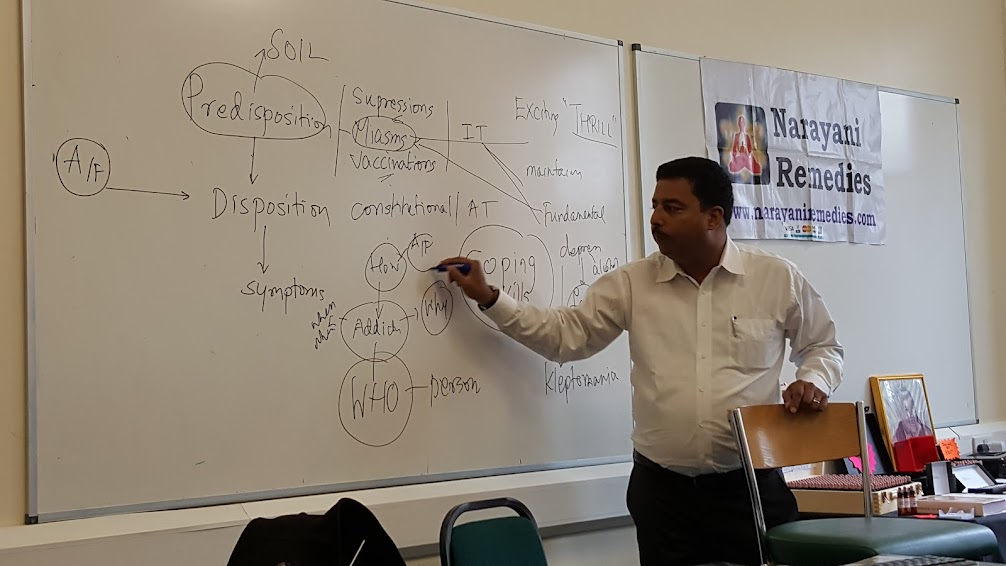 SOIL
Predisposition
Supressions
Miasms
Vaccinations
IT
Exciting "THRILL"
maintain
Fundamental
A/F
Disposition
Constitutional / AT
symptoms
How
A/F
Coping
Addict
Why
WHO
person
Kleptomania
Narayani
Remedies
www.narayaniremedies.com
VISA